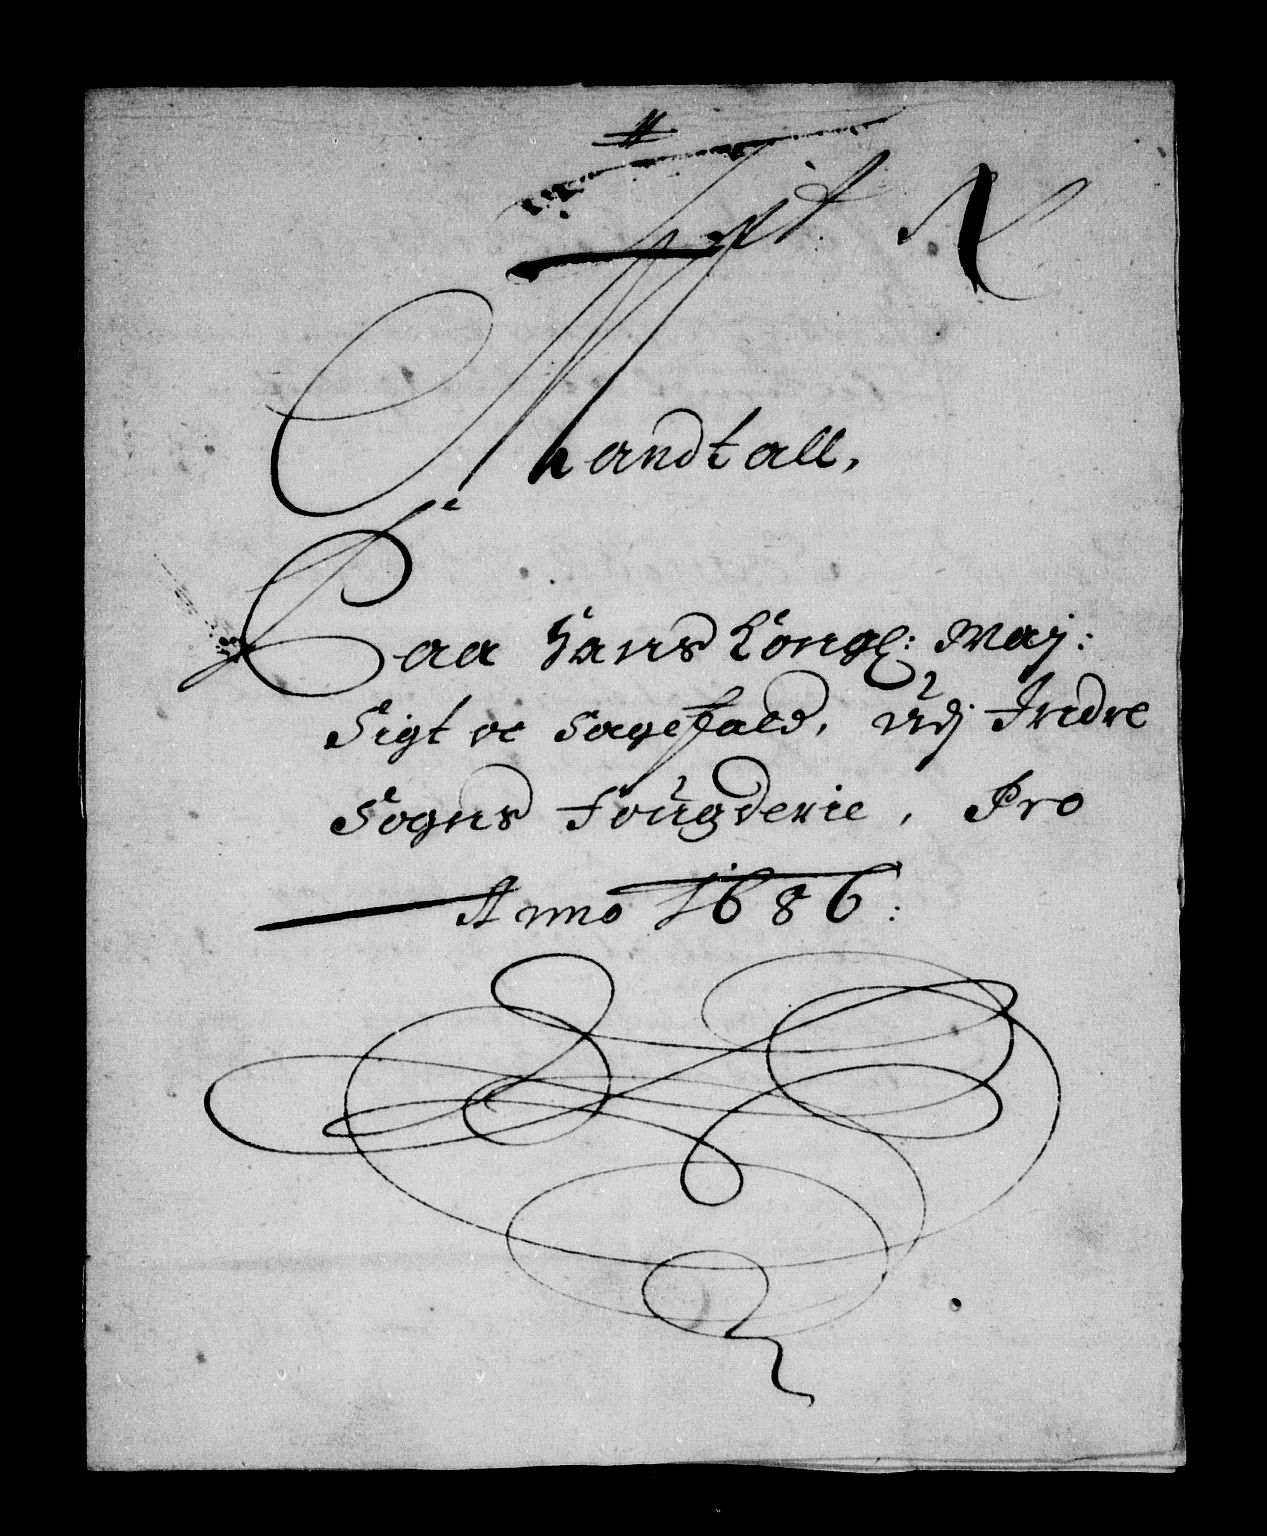 Mandtall,
Paa Hans Kongl: May:
Sigt oc Sagefald, udj Indre
Sogns Fougderie, Pro
Anno 1686: